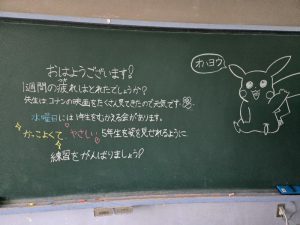 おはようございます！
1週間の疲れはとれたでしょうか？
先生はコナンの映画をたくさん見てきたので元気です
水曜日には1年生をむかえる会があります。
かっこよくて、やさしい、5年生を姿を見せれるように
練習をがんばりましょう！
オハヨウ